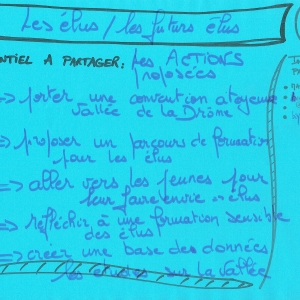 Les élus / les futurs élus
NTIEL A PARTAGER: Les ACTIONS
proposées
=> porter une convention citoyenne
Vallée de la Drôme
=> proposer un parcours de formation
pour les élus
=> aller vers les jeunes pour
leur faire envie
=> réfléchir à une formation sensible
des élus
=> créer une base des données
les études sur la Vallée